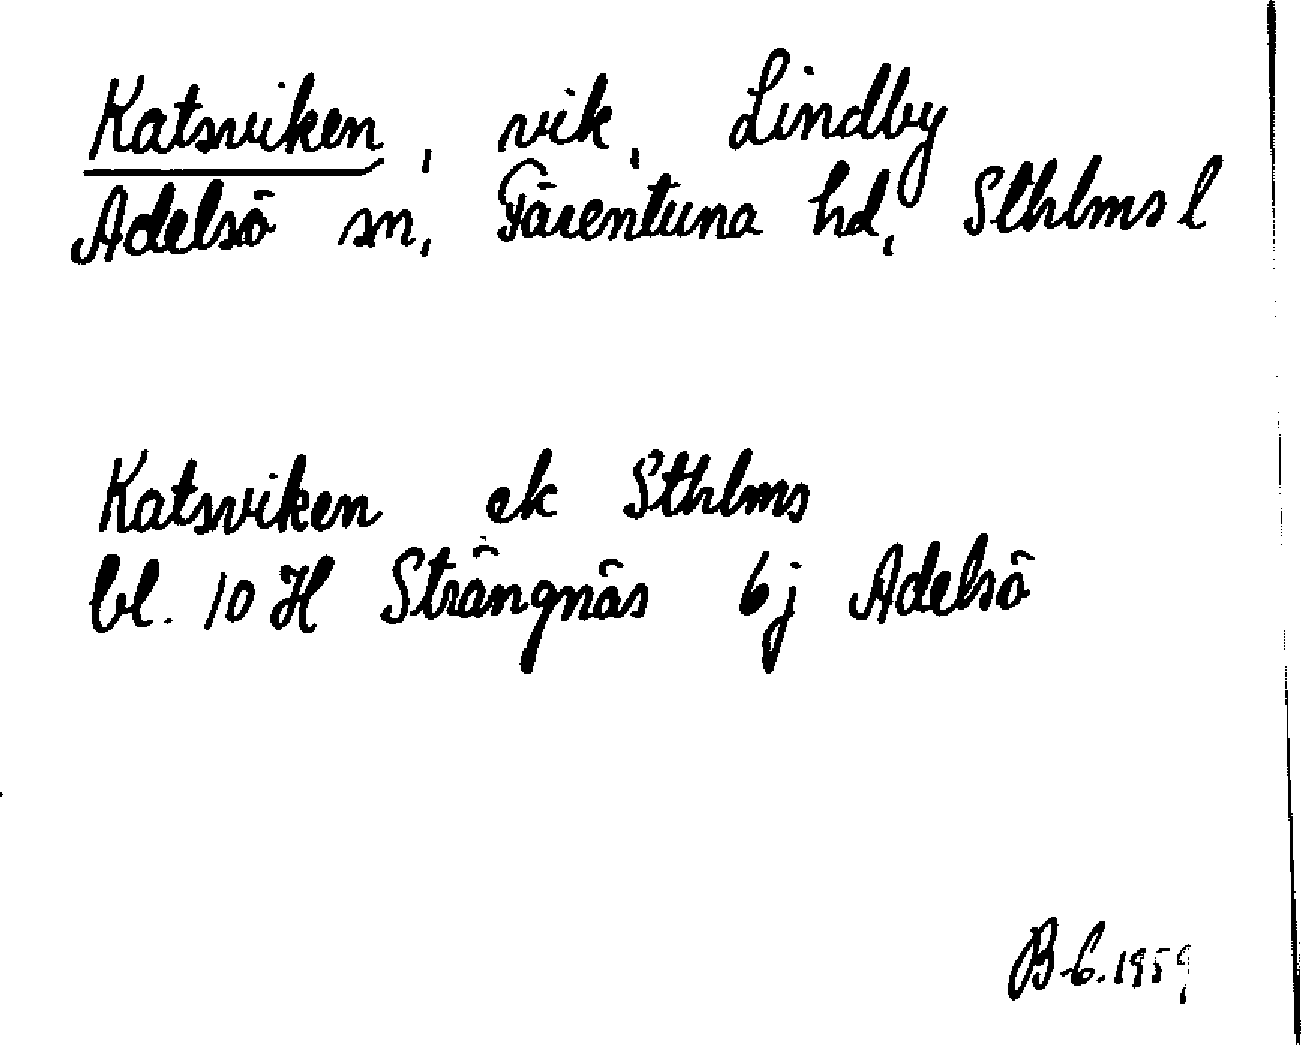 Katsviken, vik, Lindby
Adelsö sn, Färentuna hd, Sthlms l
Katsviken ek Sthlms
bl. 10 H Strängnäs 6j Adelsö
B-C. 1959